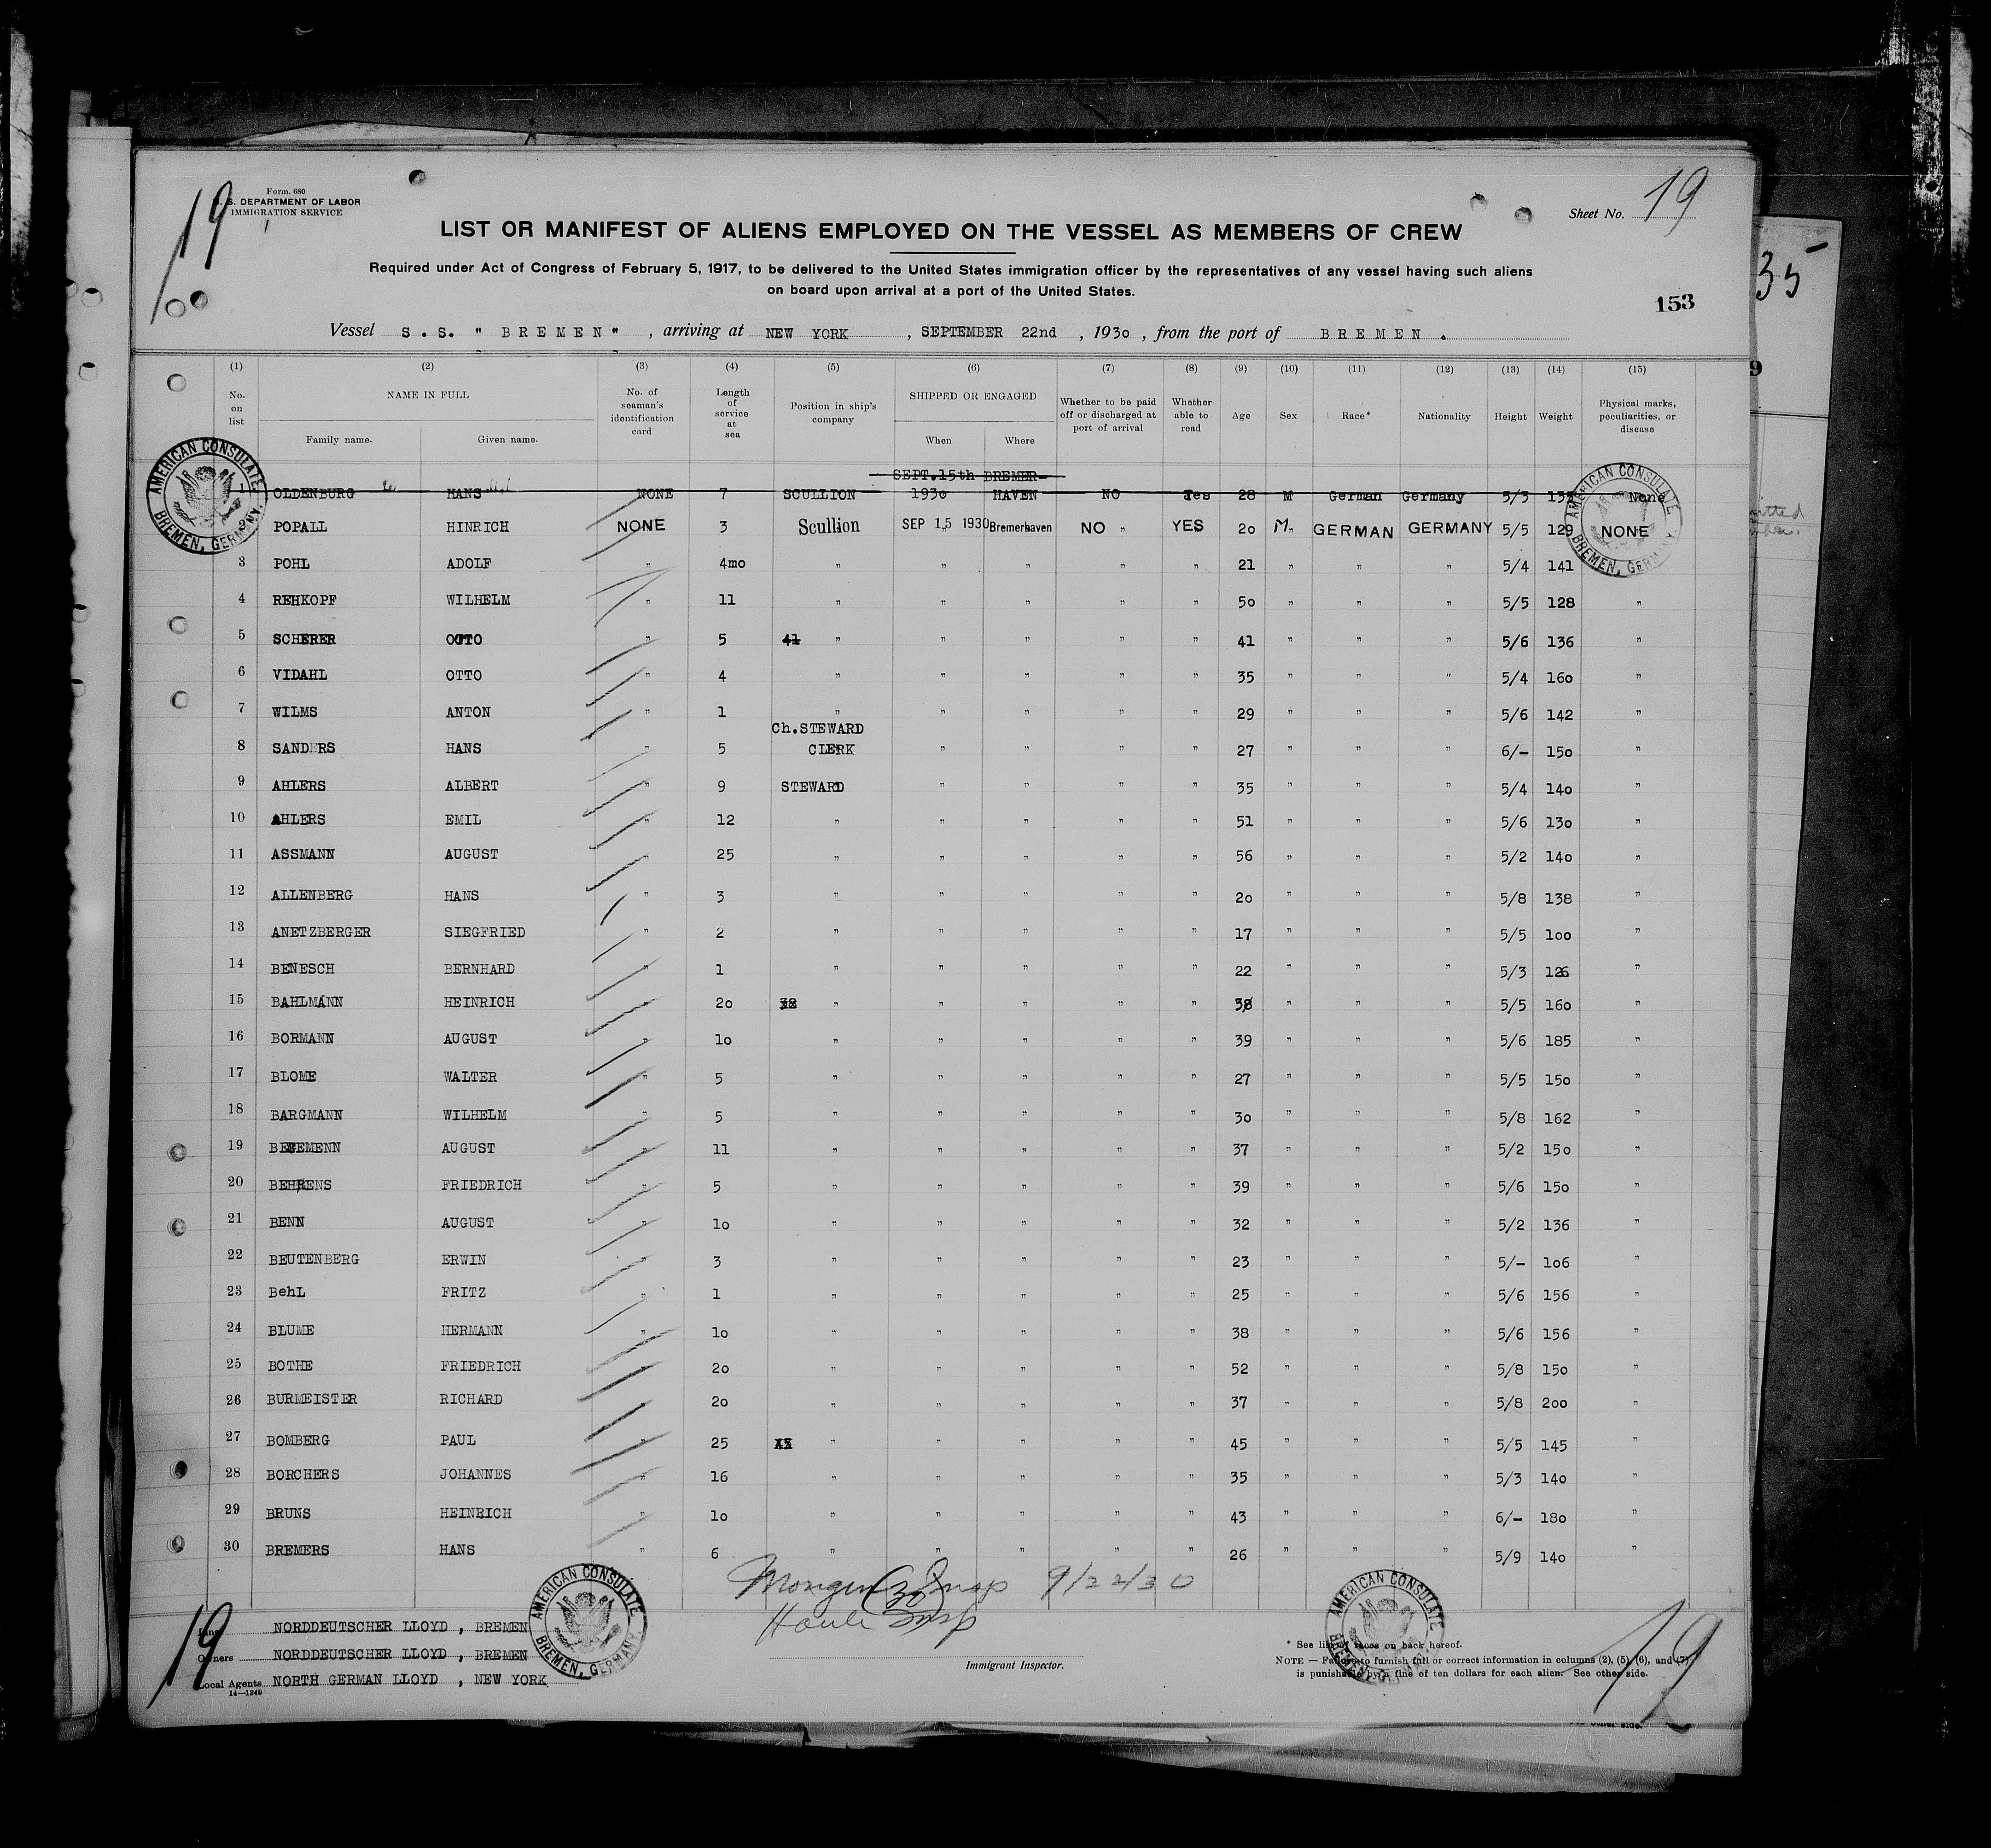 19
Form. 680
U. S. DEPARTMENT OF LABOR
IMMIGRATION SERVICE
Sheet No. 19
LIST OR MANIFEST OF ALIENS EMPLOYED ON THE VESSEL AS MEMBERS OF CREW
Required under Act of Congress of February 5, 1917, to be delivered to the United States immigration officer by the representatives of any vessel having such aliens
on board upon arrival at a port of the United States.
35
153
Vessel S.S. " BREMEN" , arriving at NEW YORK , SEPTEMBER 22nd , 1930 , from the port of BREMEN .
(1) (2) (3) (4) (5) (6) (7) (8) (9) (10) (11) (12) (13) (14) (15)
No. on list NAME IN FULL Family name. Given name. No. of seaman's identification card Length of service at sea Position in ship's company SHIPPED OR ENGAGED When Where Whether to be paid off or discharged at port of arrival Whether able to read Age Sex Race* Nationality Height Weight Physical marks, peculiarities, or disease
AMERICAN CONSULATE BREMEN, GERMANY.
AMERICAN CONSULATE BREMEN, GERMANY.
SEPT.15th BREMER-
1 OLDENBURG HANS NONE 7 SCULLION 1930 HAVEN NO Yes 28 M German Germany 5/3 None
POPALL HINRICH NONE 3 Scullion SEP 15 1930 Bremerhaven NO " YES 20 M" GERMAN GERMANY 5/5 129 NONE
3 POHL ADOLF " 4mo " " " " " 21 " " " 5/4 141
4 REHKOPF WILHELM " 11 " " " " " 50 " " " 5/5 128 "
5 SCHERER OTTO " 5 41 " " " " " 41 " " " 5/6 136 "
6 VIDAHL OTTO " 4 " " " " " 35 " " " 5/4 160 "
7 WILMS ANTON " 1 " " " " " 29 " " " 5/6 142 "
Ch.STEWARD
8 SANDERS HANS " 5 CLERK " " " " 27 " " " 6/- 150 "
9 AHLERS ALBERT " 9 STEWARD " " " " 35 " " " 5/4 140 "
10 AHLERS EMIL " 12 " " " " " 51 " " " 5/6 130 "
11 ASSMANN AUGUST " 25 " " " " " 56 " " " 5/2 140 "
12 ALLENBERG HANS " 3 " " " " " 20 " " " 5/8 138 "
13 ANETZBERGER SIEGFRIED " 2 " " " " " 17 " " " 5/5 100 "
14 BENESCH BERNHARD " 1 " " " " " 22 " " " 5/3 126 "
15 BAHLMANN HEINRICH " 20 38 " " " " " 38 " " " 5/5 160 "
16 BORMANN AUGUST " 10 " " " " " 39 " " " 5/6 185 "
17 BLOME WALTER " 5 " " " " " 27 " " " 5/5 150 "
18 BARGMANN WILHELM " 5 " " " " " 30 " " " 5/8 162 "
19 AUGUST " 11 " " " " " 37 " " " 5/2 150 "
20 BEHRENS FRIEDRICH " 5 " " " " " 39 " " " 5/6 150 "
21 BENN AUGUST " 10 " " " " " 32 " " " 5/2 136 "
22 BEUTENBERG ERWIN " 3 " " " " " 23 " " " 5/- 106 "
23 BehL FRITZ " 1 " " " " " 25 " " " 5/6 156 "
24 BLUME HERMANN " 10 " " " " " 38 " " " 5/6 156 "
25 BOTHE FRIEDRICH " 20 " " " " " 52 " " " 5/8 150 "
26 BURMEISTER RICHARD " 20 " " " " " 37 " " " 5/8 200 "
27 BOMBERG PAUL " 25 " " " " " 45 " " " 5/5 145 "
28 BORCHERS JOHANNES " 16 " " " " " 35 " " " 5/3 140 "
29 BRUNS HEINRICH " 10 " " " " " 43 " " " 6/- 180 "
30 BREMERS HANS " 6 " " " " " 26 " " " 5/9 140 "
9/22/30
Insp
AMERICAN CONSULATE BREMEN, GERMANY.
AMERICAN CONSULATE
19
NORDDEUTSCHER LLOYD , BREMEN
Owners NORDDEUTSCHER LLOYD , BREMEN
Local Agents NORTH GERMAN LLOYD , NEW YORK
14—1240
Immigrant Inspector.
* See list of races on back hereof.
NOTE — Failure to furnish full or correct information in columns (2), (5), (6), and (7)
is punishable by a fine of ten dollars for each alien. See other side.
19